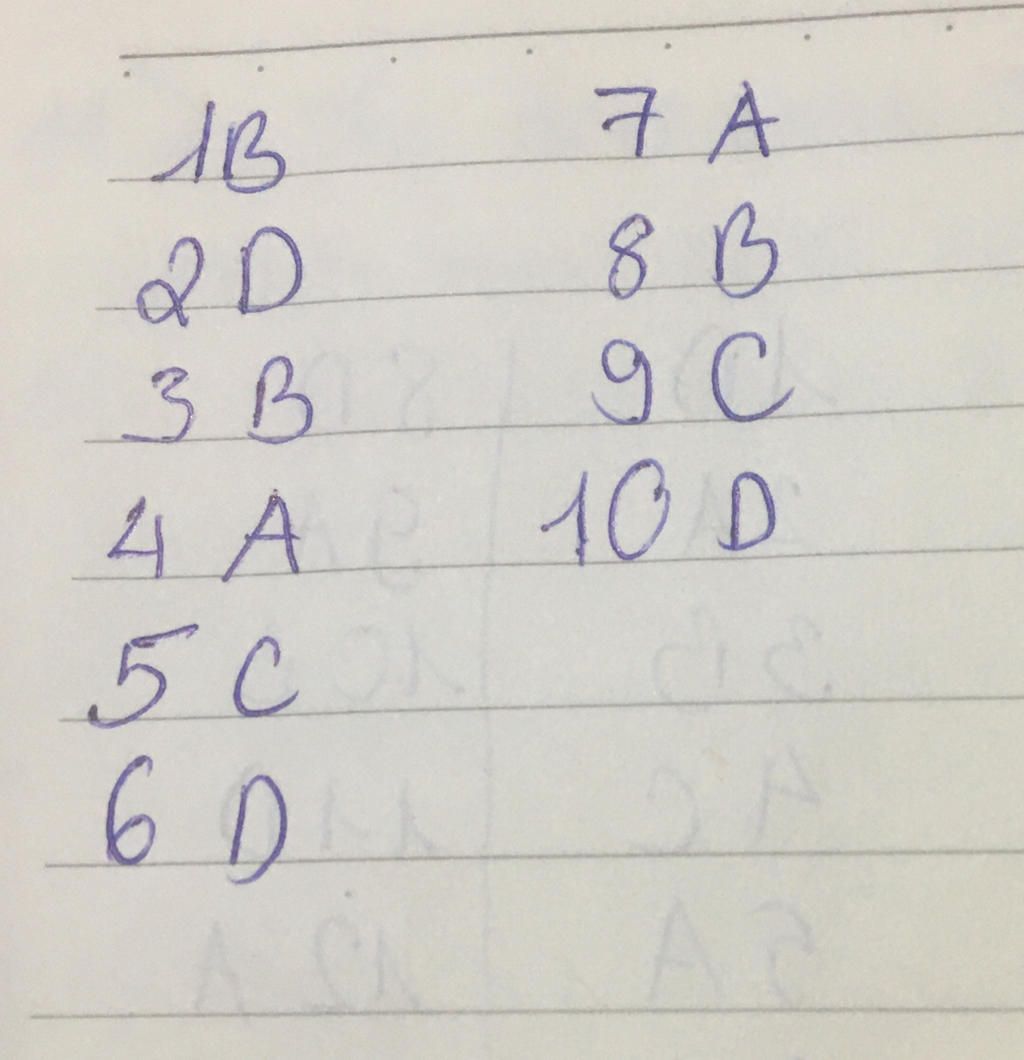 1B
2 D
3 B
4 A
5 C
6 D
7 A
8 B
9 C
10 D